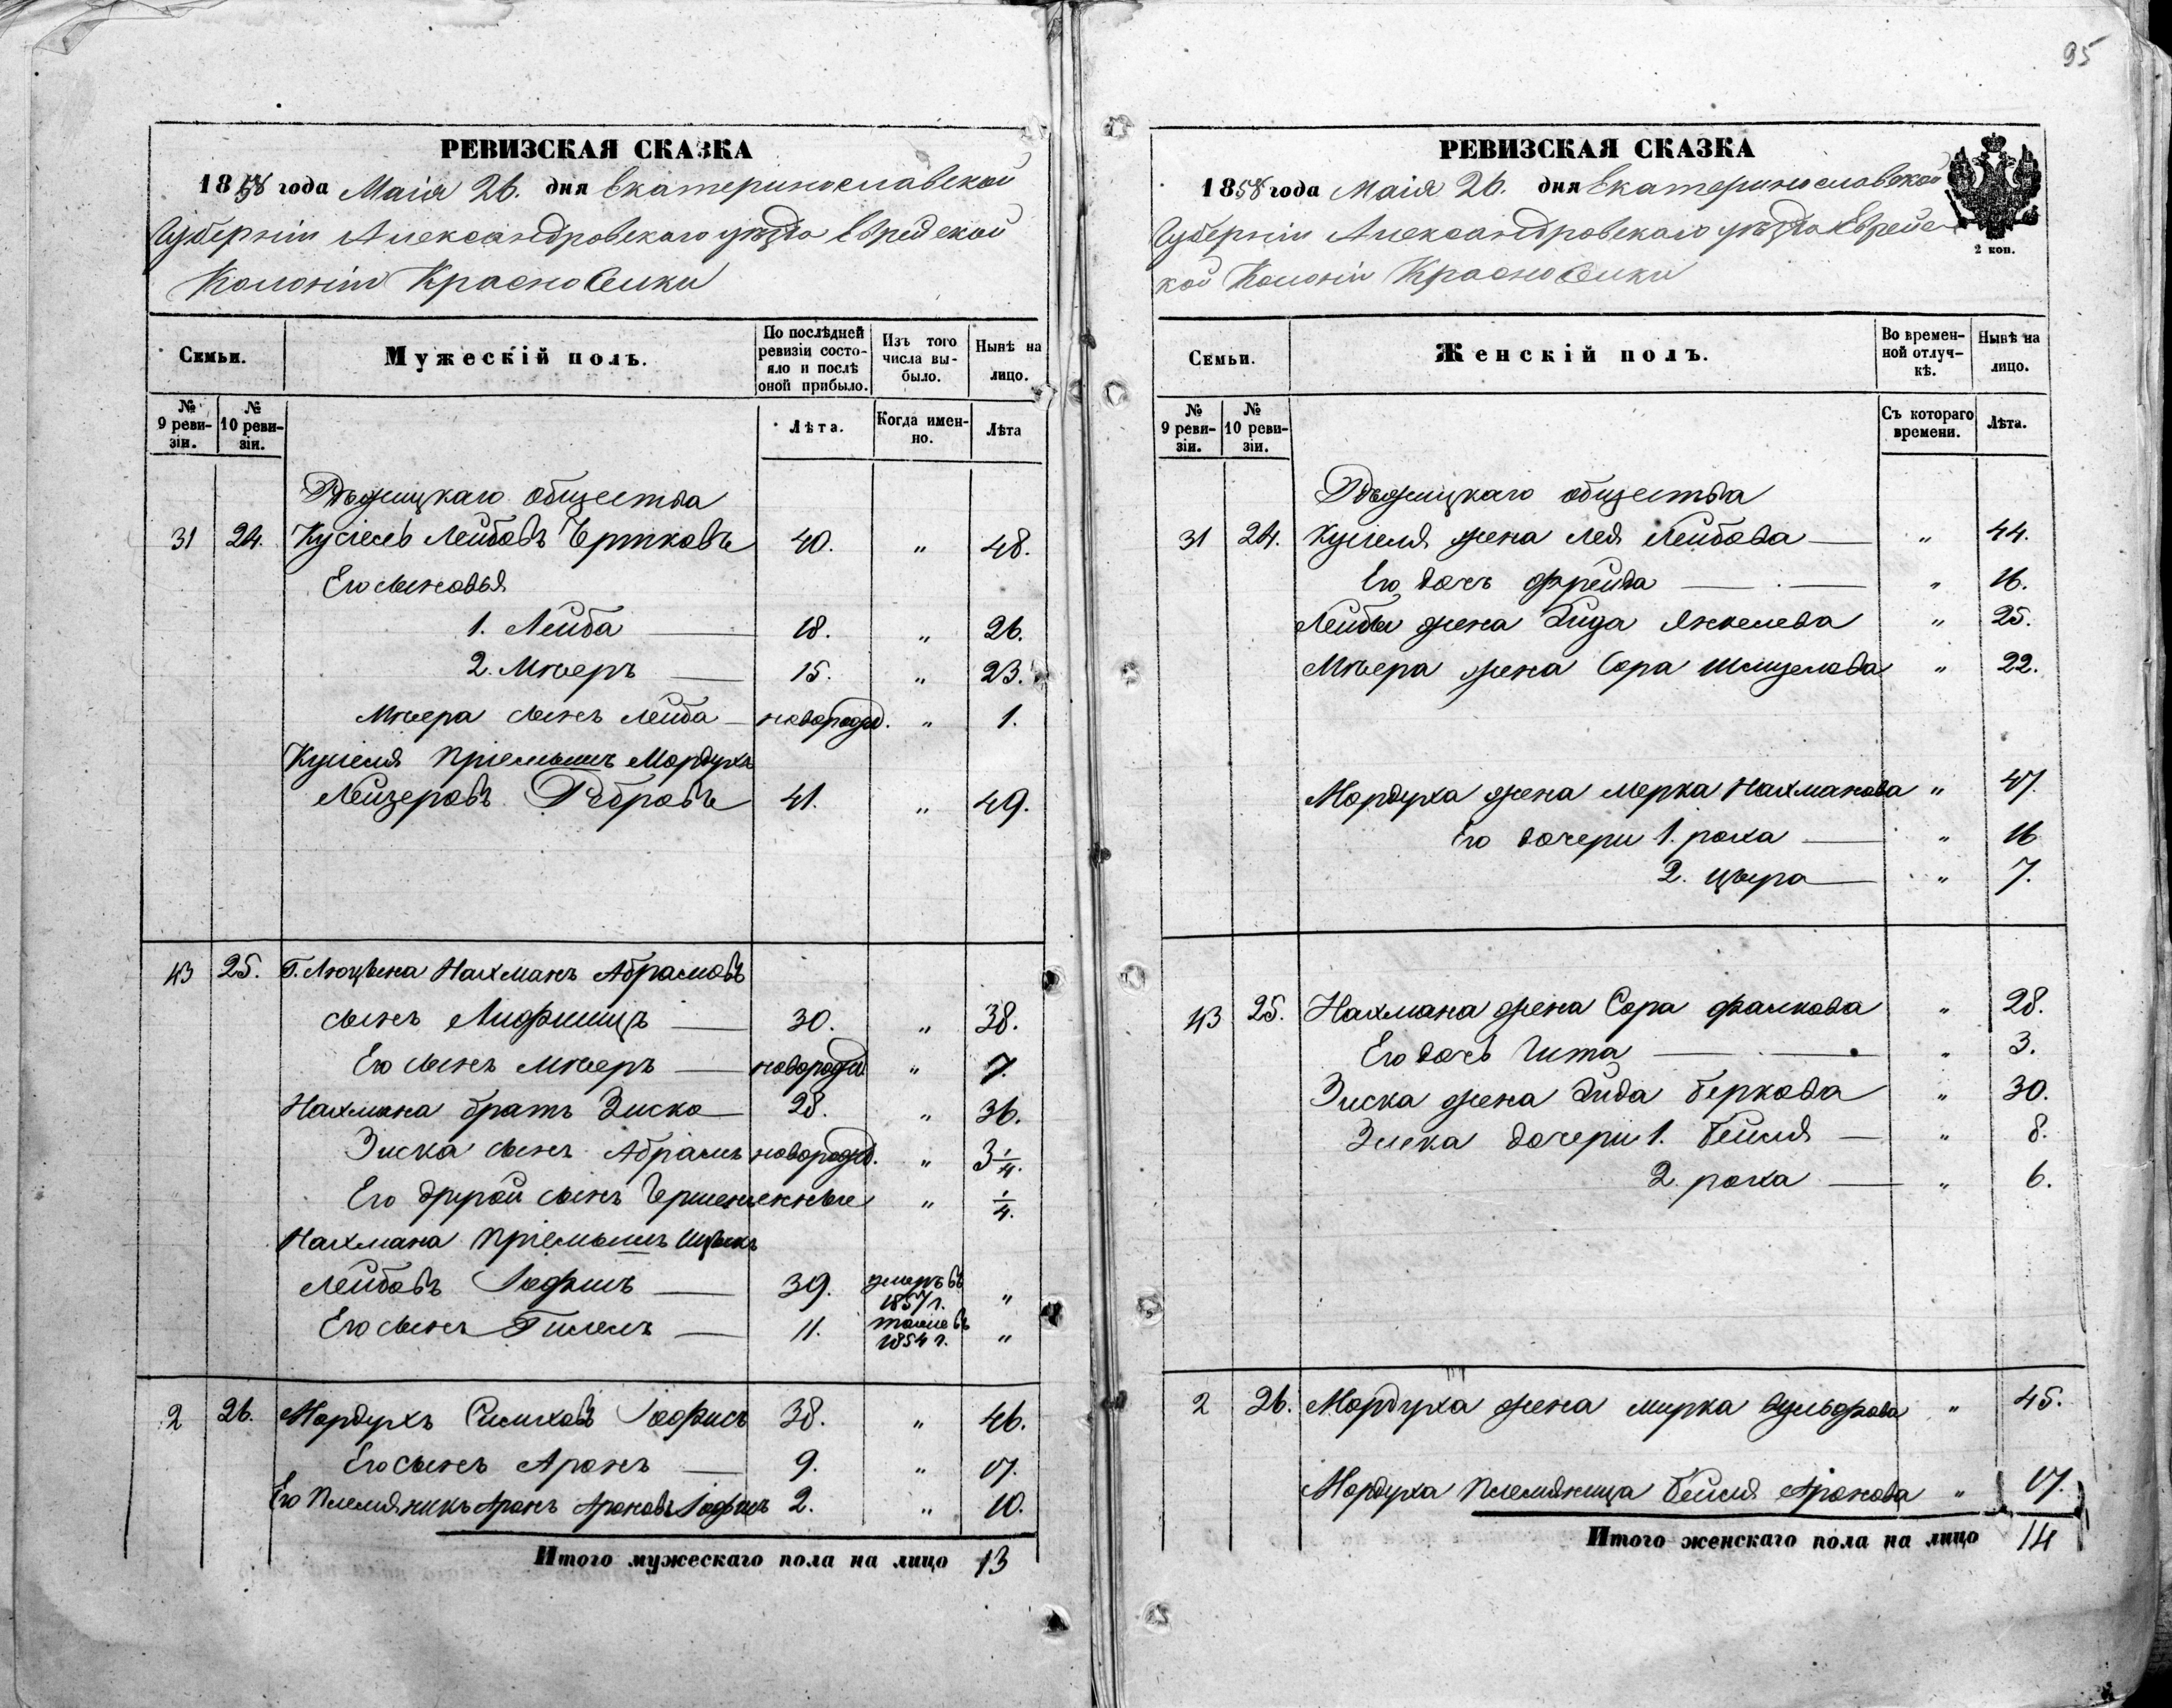 95
РЕВИЗСКАЯ СКАЗКА
1858 года Маія 26. дня Екатеринославской
Губерніи Александровскаго уѣзда Еврейской
Колоніи Красноселки
Семьи.
Мужескій полъ.
По послѣдней ревизіи состояло и послѣ оной прибыло.
Изъ того числа выбыло.
Нынѣ на лицо.
№ 9 ревизіи.
№ 10 ревизіи.
Лѣта.
Когда именно.
Лѣта
Рѣжицкаго общества
31 24. Кусіель Лейбовъ Чертковъ 40. „ 48.
Его сыновья
1. Лейба — 18. „ 26.
2. Мееръ — 15. „ 23.
Меера сынъ Лейба — новорожд. „ 1.
Кусіеля пріемышъ Мордухъ
Лейзеровъ Ребровъ 41. „ 49.
43 25. Г. Люцына Нахманъ Абрамовъ
сынъ Лифшицъ — 30. „ 38.
Его сынъ Мееръ — новорожд. „ 7.
Нахмана братъ Зиско — 28. „ 36.
Зиска сынъ Абрамъ новорожд. „ 3 1/4.
Его другой сынъ „ 1/4.
Нахмана пріемышъ Ицыкъ
Лейбовъ Іофишъ — 39. умеръ въ 1857 г. „
Его сынъ Гилелъ — 11. тоже въ 1854 г. „
2 26. Мордухъ Симховъ Іофисъ 38. „ 46.
Его сынъ Аронъ — 9. „ 17.
Его племянникъ Аронъ Ароновъ Іофишъ 2. „ 10.
Итого мужескаго пола на лицо 13
РЕВИЗСКАЯ СКАЗКА
1858 года Маія 26. дня Екатеринославской
Губерніи Александровскаго уѣзда Еврейс-
кой Колоніи Красноселки
2 коп.
Семьи.
Женскій полъ.
Во временной отлучкѣ.
Нынѣ на лицо.
№ 9 ревизіи.
№ 10 ревизіи.
Съ котораго времени.
Лѣта.
Рѣжицкаго общества
31 24. Кусіеля жена Лея Лейбова — „ 44.
Его дочь Фрейда — „ 16.
Лейбы жена Янкелева „ 25.
Меера жена Сора „ 22.
Мордуха жена Мерка Нахманова „ 47.
Его дочери 1. Роха — „ 16
2. Цыра — „ 7.
43 25. Нахмана жена Сора Фалкова „ 28.
Его дочь Гита — „ 3.
Зиска жена Беркова „ 30.
Зиска дочери 1. Бейля — „ 8.
2. Роха — „ 6.
2 26. Мордуха жена Мирка Вульфова „ 45.
Мордуха племянница Бейля Аронова „ 17.
Итого женскаго пола на лицо 14